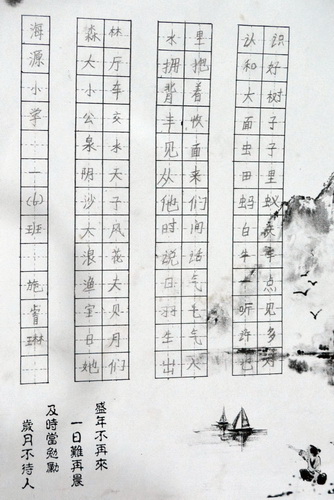 海源小学一(6)班施睿琳
森林
大厅
小车
公交
泉水
阴天
沙子
大风
浪花
渔夫
宝贝
日月
她们
水里
拥抱
背着
丰收
见面
从来
他们
时间
说话
日气
羽毛
生气
出入
认识
和好
大树
面子
虫子
田里
蚂蚁
白
牛
一点
听见
许多
盛年不再來
一日難再晨
及時當勉勵
歲月不待人